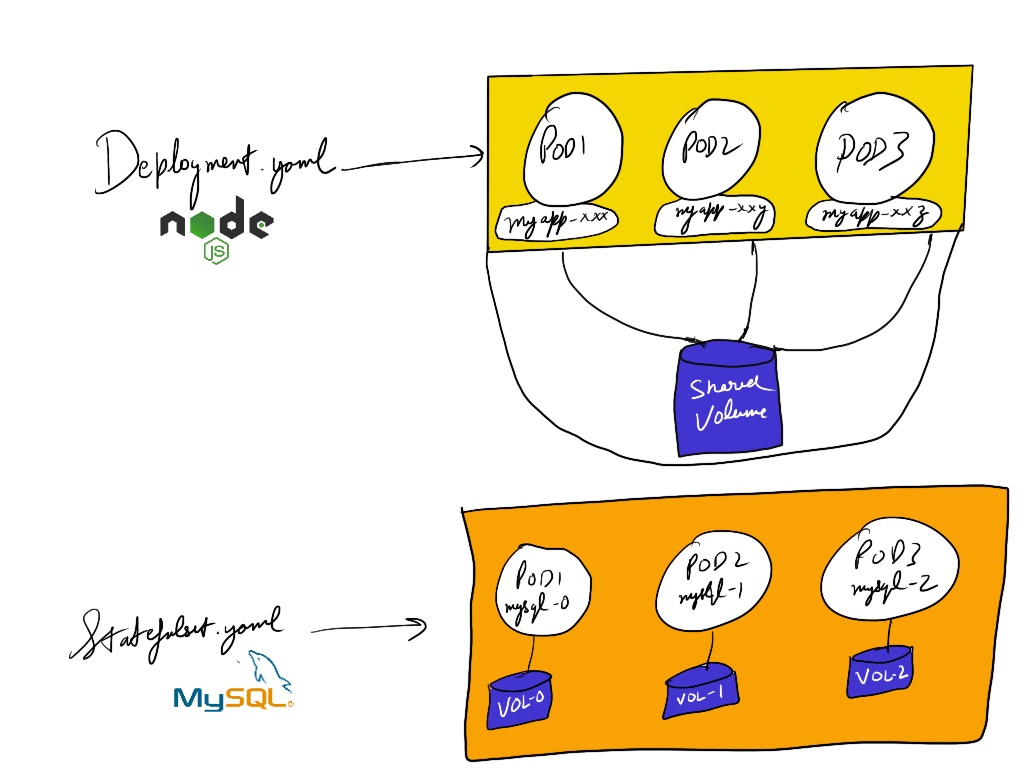 Deployment.yaml
node
JS
POD1
POD2
POD3
myapp-xxx
myapp-xxy
myapp-xxz
Shared
Volume
Statefulset.yaml
MySQL
POD1
mysql-0
POD2
mysql-1
POD3
mysql-2
VOL-0
VOL-1
VOL-2